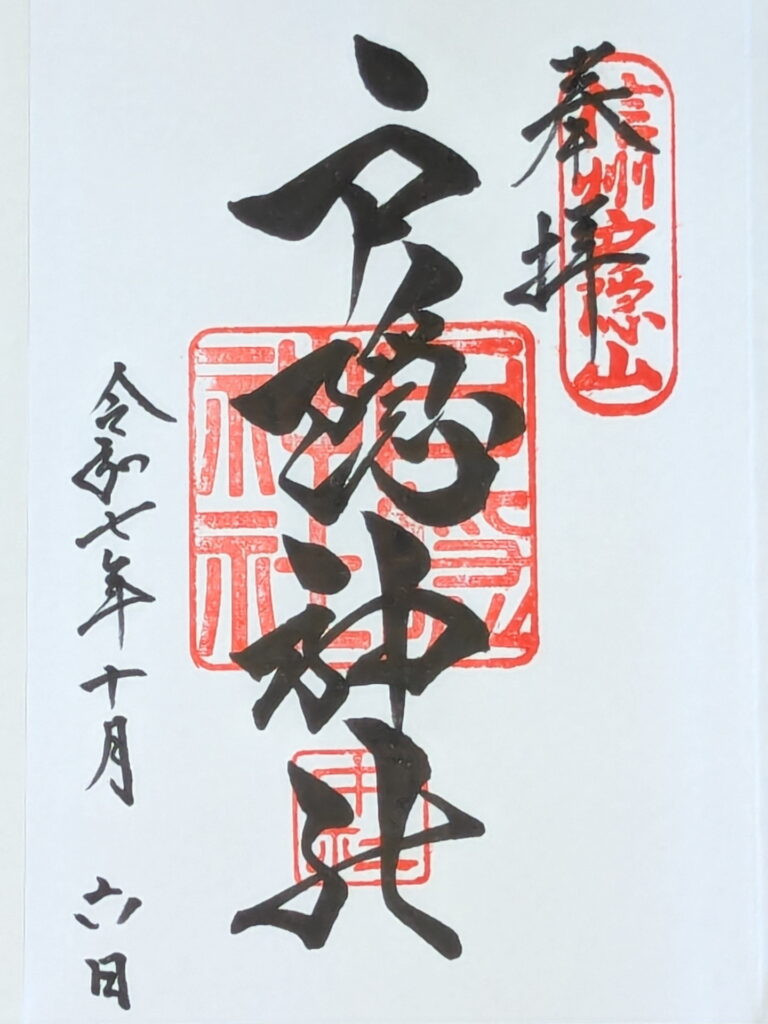 奉拝
信州戸隠山
戸隠神社
戸隠神社
中社
令和七年十月六日